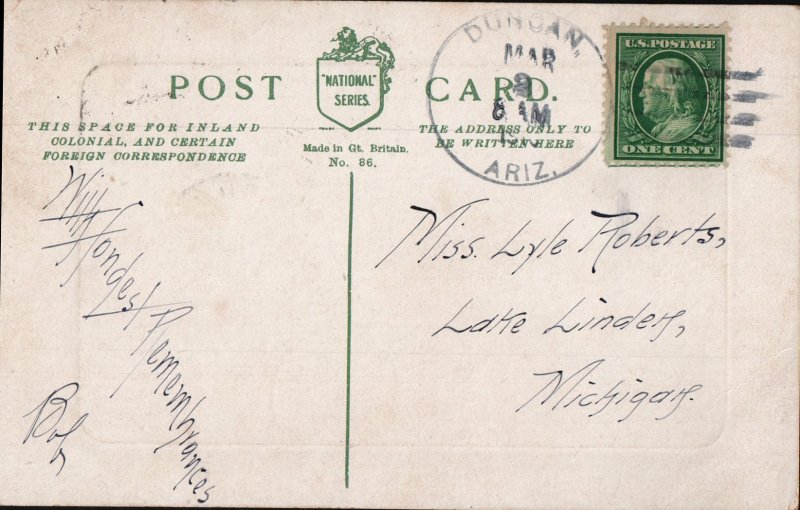 POST CARD.
"NATIONAL"
SERIES.
THIS SPACE FOR INLAND
COLONIAL, AND CERTAIN
FOREIGN CORRESPONDENCE
Made in Gt. Britain.
No. 86.
THE ADDRESS ONLY TO
BE WRITTEN HERE
DUNCAN
MAR
8 AM
ARIZ.
U.S. POSTAGE
ONE CENT
With
Fondest
Remembrances
Bob
Miss. Lyle Roberts,
Lake Linden,
Michigan.